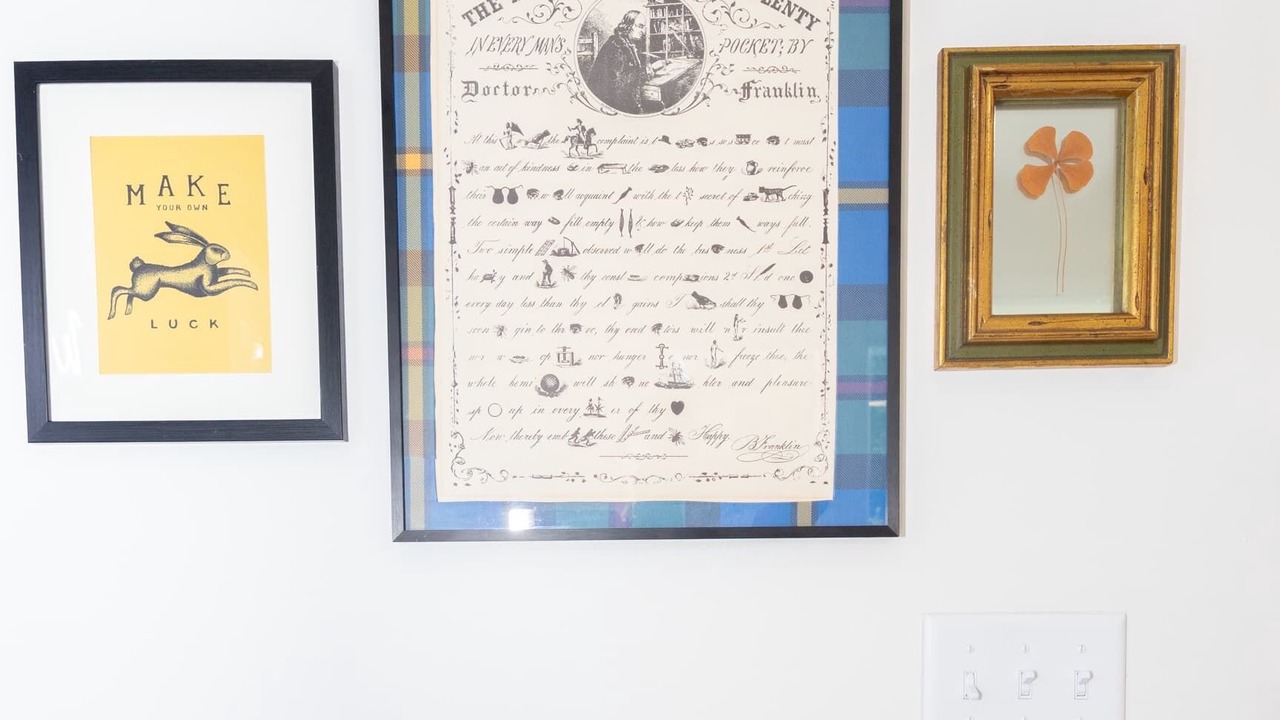 MAKE
YOUR OWN
LUCK
THE
IN EVERY MAN'S POCKET; BY
Doctor Franklin
At this the complaint is t s so s ce t must
an act of kindness in the less how they reinforce
their w ll acquaint with the t secret of chizg
the certain way fill empty & how keep them ways full.
Two simple observed w ll do the bus ness 1st Let
ho y and thy const comp ions 2d d one
every day less than thy el gains I shall thy
soon gin to th ve, thy cred tors will n r insult thee
nor w op nor hunger e nor freeze thee, the
whole hemi will sh ne hter and pleasure
sp up in every er of thy
Now thereby emb these and Happy.
B Franklin